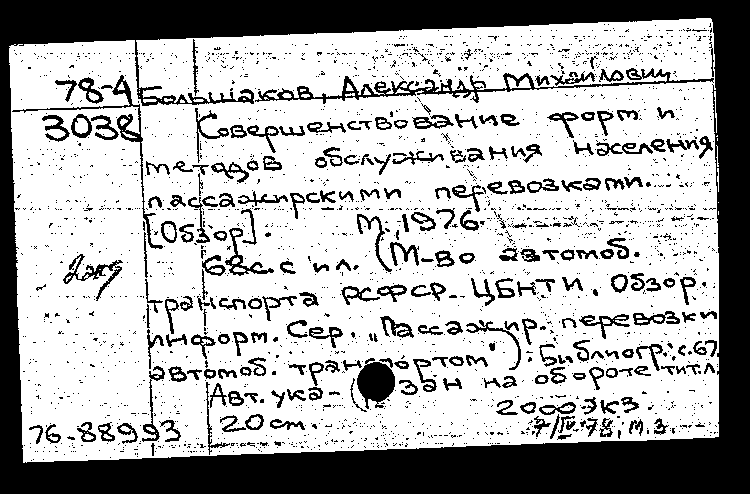 78-4 Большаков, Александр Михайлович
3038 Совершенствование форм и
методов обслуживания населения
пассажирскими перевозками.
[Обзор]. М., 1976.
2 экз 68 с. с ил. (М-во автомоб.
транспорта РСФСР. ЦБНТИ. Обзор.
информ. Сер. „Пассажир. перевозки
автомоб. транспортом"). Библиогр.: с. 67.
Авт. ука- зан на обороте тит. л.
2000 экз.
76-88993 20 см.
7/IV-78, м.з.